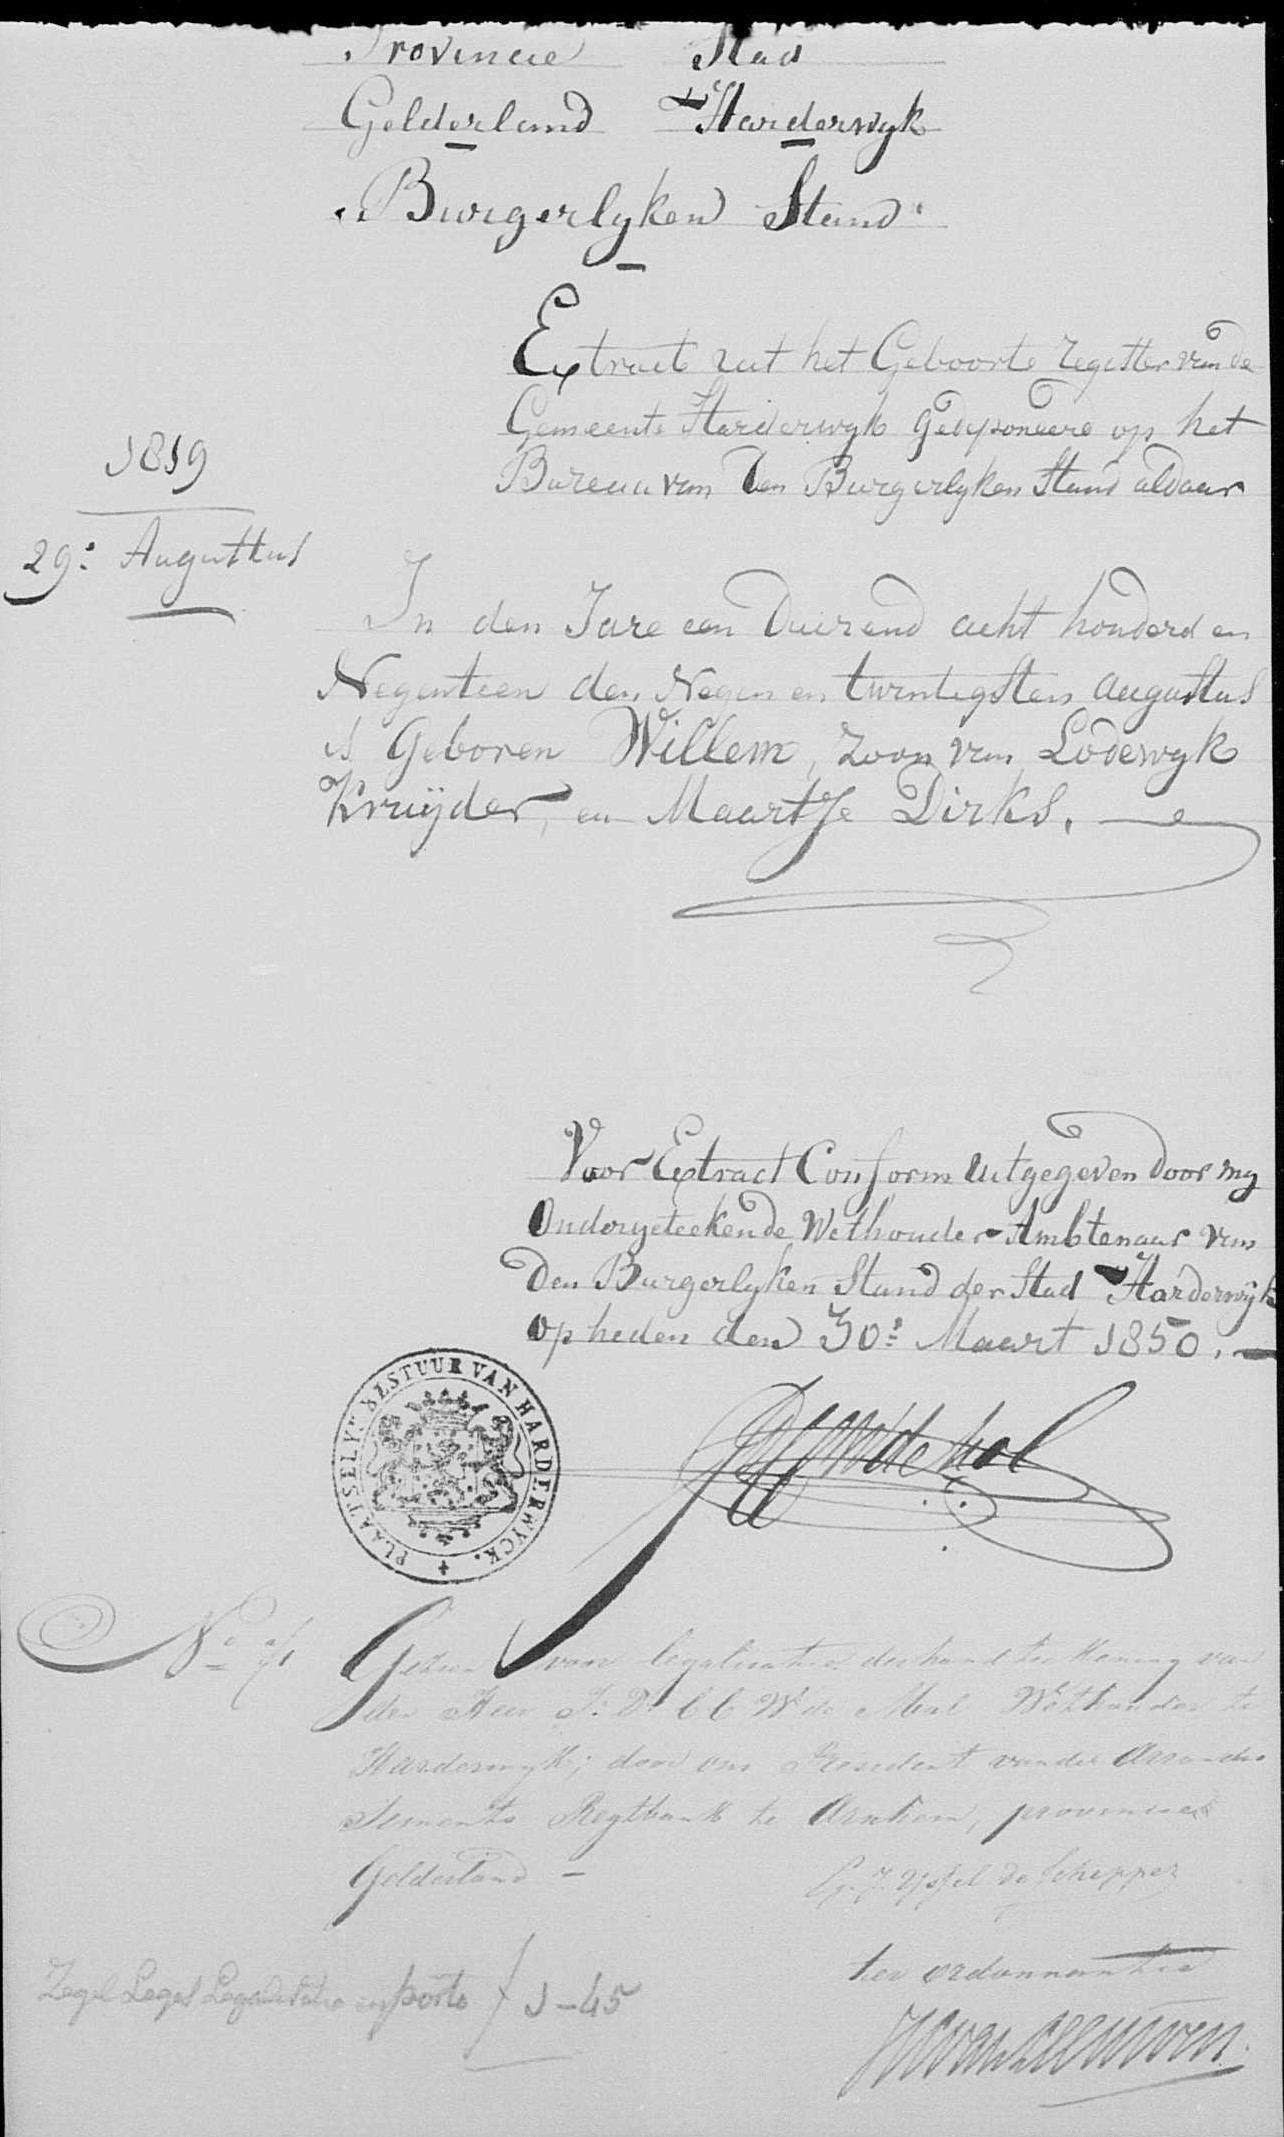 Provincie Stad
Gelderland Harderwyk
Burgerlyken Stand
Extract uit het Geboorte register van de
Gemeente Harderwyk gedeponeerd op het
Bureau van den Burgerlyken Stand aldaar
1819
29: Augustus
In den Jare een Duizend acht honderd en
Negentien den Negen en twintigsten augustus
is Geboren Willem, zoon van Lodewyk
Kruijder, en Maartje Dirks.
Voor Extract Conform uitgegeven door my
Ondergeteekende Wethouder Ambtenaar van
Den Burgerlyken Stand der Stad Harderwijk
op heden den 30: Maart 1850.
PLAATSELYK BESTUUR VAN HARDERWYCK.
No
Gezien voor legalisatie der handteekening van
den Heer J: D: C C W de Mol Wethouder te
Harderwyk, door ons President van de Arrondis
sements Regtbank te Arnhem, provincie
Gelderland
G. J. Yssel de Schepper
ter ordonnantie
van Leeuwen
Zegel Leges Legalisatie en porto f 1-45